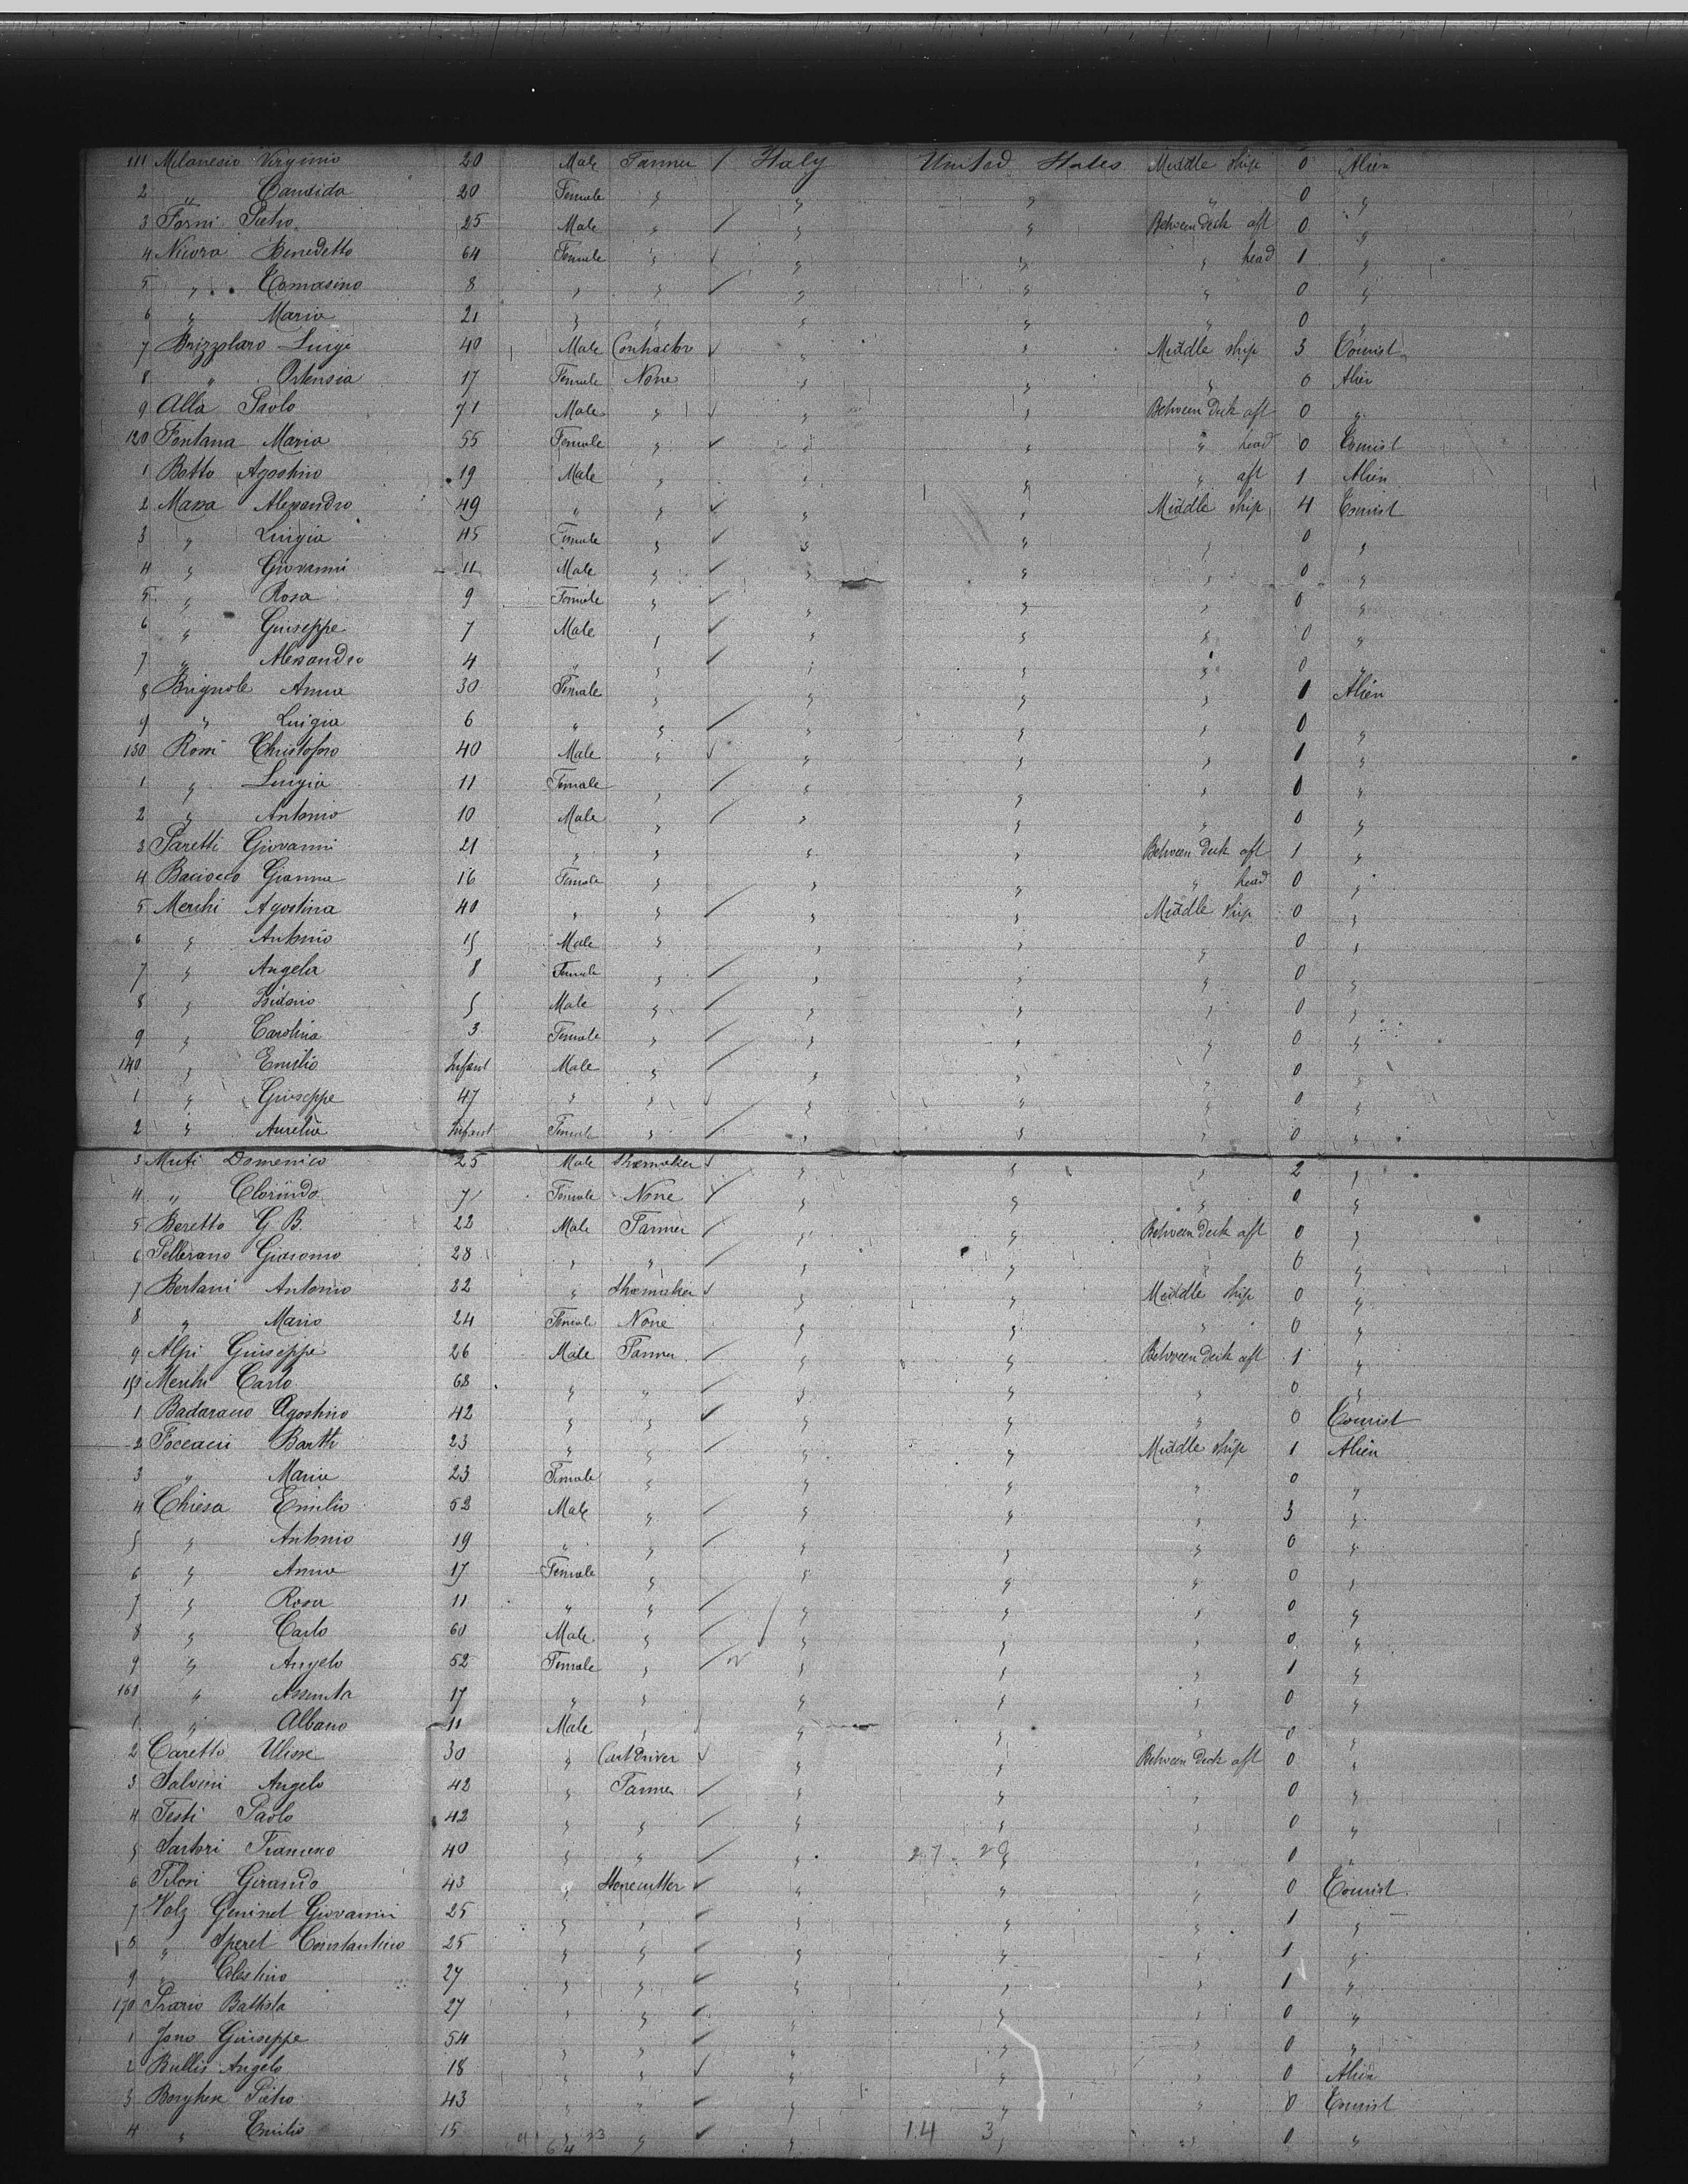 111 Milanesio Virginio 20 Male Farmer / Italy United States Middle ship 0 Alien
2 " Candida 20 Female " " " " 0 "
3 Forni Pietro 25 Male " / " " Between deck aft 0 "
4 Benedetto 64 Female " " " " head 1 "
5 " Tomasino 8 " " / " " " 0 "
6 " Maria 21 " " " " " 0 "
7 Brizzolaro Luigi 40 Male Contractor " " Middle ship 3 Tourist
8 " Ortensia 17 Female None " " " 0 Alien
9 Alla Paolo 71 Male " " " Between deck aft 0 "
120 Fontana Maria 55 Female " " " " head 0 Tourist
1 Botto Agostino 19 Male " " " " aft 1 Alien
2 Massa Alessandro 49 " " " " Middle ship 4 Tourist
3 " Luigia 45 Female " " " " 0 "
4 " Giovanni 11 Male " " " " 0 "
5 " Rosa 9 Female " " " " 0 "
6 " Giuseppe 7 Male " " " " 0 "
7 " Alessandro 4 " " " " " 0 "
8 Brignole Anna 30 Female " " " " 1 Alien
9 " Luigia 6 " " / " " " 0 "
130 Rossi Christoforo 40 Male " " " " 1 "
1 " Luigia 11 Female " / " " " 0 "
2 " Antonio 10 Male " / " " " 0 "
3 Paretti Giovanni 21 " " " " Between deck aft 1 "
4 Baciocco Gianna 16 Female " " " " head 0 "
5 Menhi Agostina 40 " " / " " Middle ship 0 "
6 " Antonio 15 Male " " " " 0 "
7 " Angela 8 Female " / " " " 0 "
8 " Isidorio 5 Male " / " " " 0 "
9 " Carolina 3 Female " / " " " 0 "
140 " Emilio Infant Male " / " " " 0 "
1 " Giuseppe 47 " " " " " 0 "
2 " Aurelia Infant Female " / " " " 0 "
3 Muti Domenico 25 Male Shoemaker " " " 2 "
4 " Clorindo 7 Female None " " " 0 "
5 Beretto G B 22 Male Farmer / " " Between deck aft 0 "
6 Pellerano Giacomo 28 " " / " " " 0 "
7 Bertani Antonio 22 " Shoemaker " " Middle ship 0 "
8 " Maria 24 Female None " " " 0 "
9 Alpi Giuseppe 26 Male Farmer / " " Between deck aft 1 "
150 Menhi Carlo 68 " " / " " " 0 "
1 Badaracco Agostino 42 " " " " " 0 Tourist
2 Foccacci Barth 23 " " / " " Middle ship 1 Alien
3 " Maria 23 Female " " " " 0 "
4 Chiesa Emilio 52 Male " / " " " 3 "
5 " Antonio 19 " " / " " " 0 "
6 " Anna 17 Female " " " " 0 "
7 " Rosa 11 " " / " " " 0 "
8 " Carlo 60 Male " / " " " 0 "
9 " Angelo 52 Female " / " " " 1 "
160 " Assunta 17 " " " " " 0 "
1 " Albano 11 Male " " " " 0 "
2 Caretto Ulisse 30 " Cart Driver " " Between deck aft 0 "
3 Salvini Angelo 42 " Farmer / " " " 0 "
4 Testi Paolo 42 " " / " " " 0 "
5 Sartori Francesco 40 " " / " 27 " " 0 "
6 Girardo 43 " Stonecutter " " " 0 Tourist
7 Volz Geninet Giovanni 25 " " " " " 1 "
8 " Speret Constantino 25 " " " " " 1 "
9 " Celestino 27 " " " " " 1 "
170 Prario Battista 27 " " " " " 0 "
1 Jono Giuseppe 54 " " " " " 0 "
2 Bullis Angelo 18 " " " " " 0 Alien
3 Borghese Pietro 43 " " " " " 0 Tourist
4 " Emilio 15 " " " " " 0 "
64 14 3